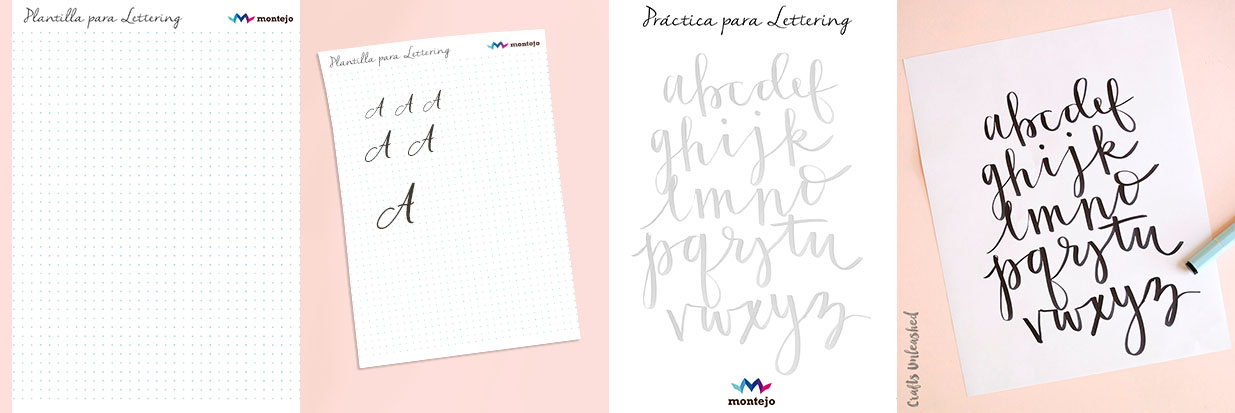 Plantilla para Lettering
montejo
Plantilla para Lettering
montejo
A A A
A A
A
Práctica para Lettering
abcdef
ghijk
lmno
pqrstu
vwxyz
montejo
abcdef
ghijk
lmno
pqrstu
vwxyz
Crafts Unleashed